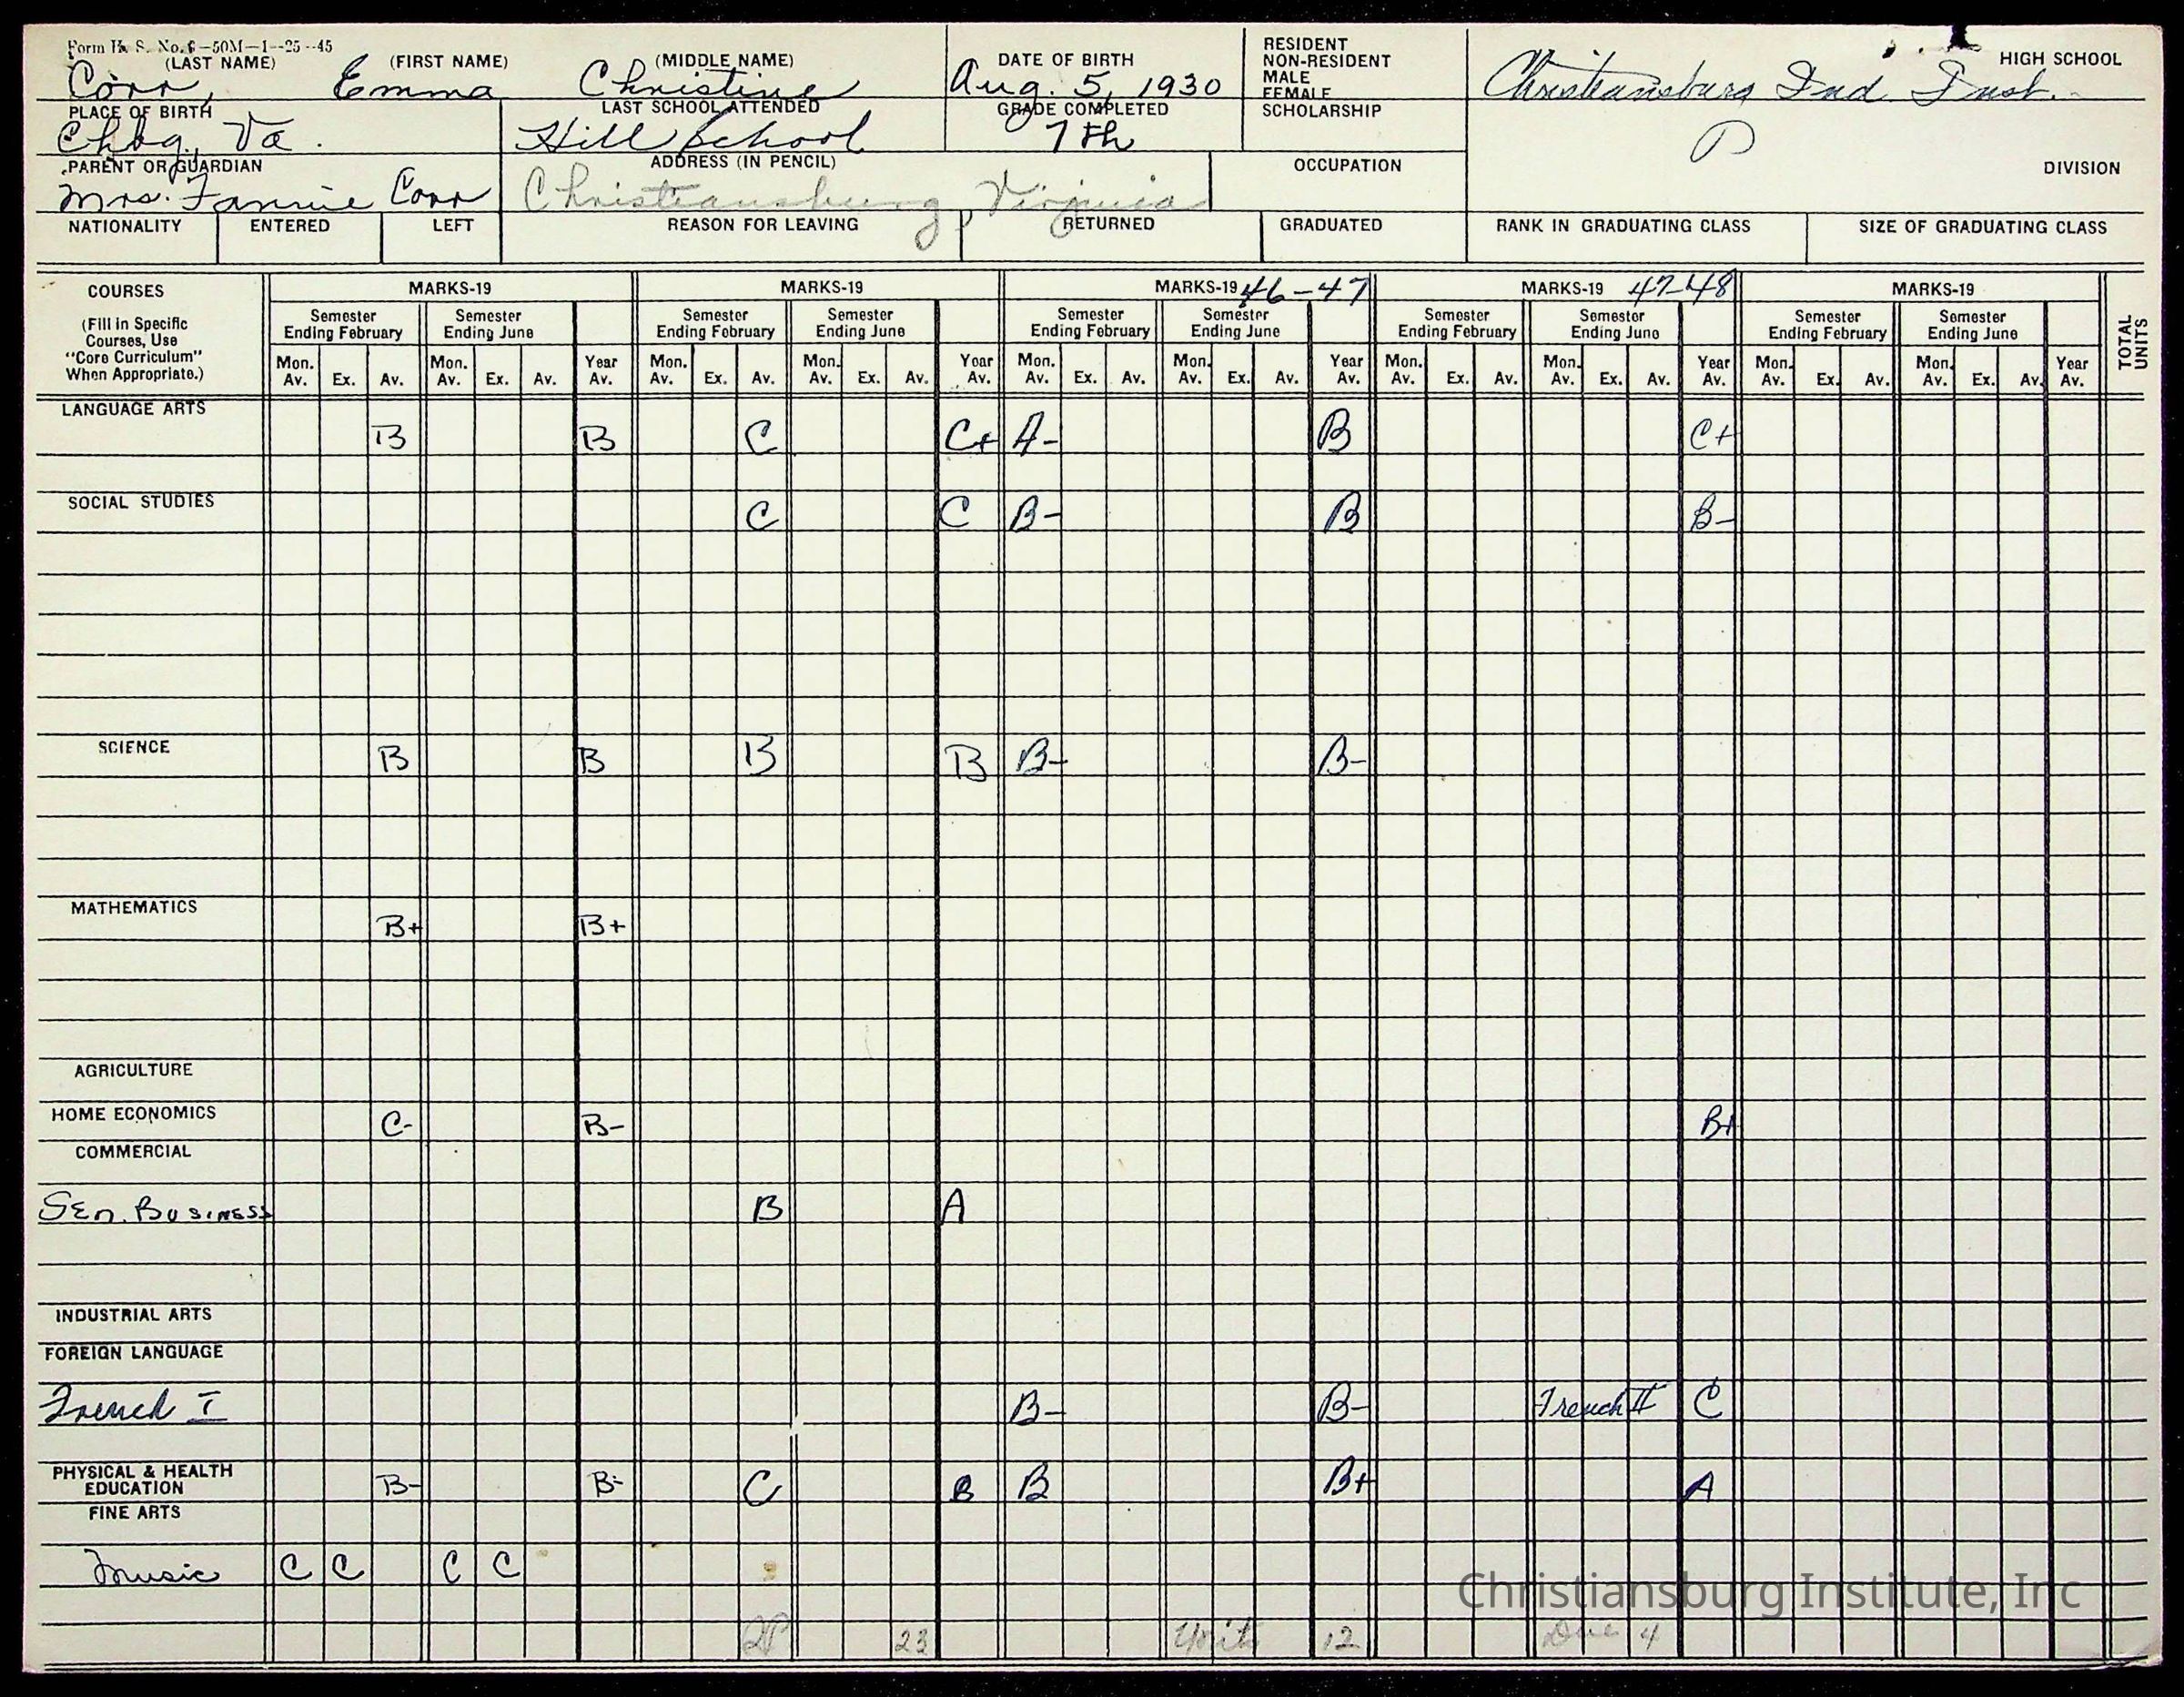 Form H. S. No. 6—50M—1--25--45
(LAST NAME) (FIRST NAME) (MIDDLE NAME) DATE OF BIRTH
Corr, Emma Christine Aug. 5, 1930
RESIDENT
NON-RESIDENT
MALE
FEMALE
SCHOLARSHIP
HIGH SCHOOL
Christiansburg Ind. Inst.
PLACE OF BIRTH LAST SCHOOL ATTENDED GRADE COMPLETED
Chbg., Va. Hill School 7th
PARENT OR GUARDIAN ADDRESS (IN PENCIL) OCCUPATION DIVISION
Mrs. Fannie Corr Christiansburg, Virginia
NATIONALITY ENTERED LEFT REASON FOR LEAVING RETURNED GRADUATED RANK IN GRADUATING CLASS SIZE OF GRADUATING CLASS
COURSES
(Fill in Specific
Courses, Use
"Core Curriculum"
When Appropriate.)
MARKS-19 MARKS-19 MARKS-19 46-47 MARKS-19 47-48 MARKS-19
Semester Semester Semester Semester Semester Semester Semester Semester Semester Semester
Ending February Ending June Ending February Ending June Ending February Ending June Ending February Ending June Ending February Ending June
Mon. Mon. Year Mon. Mon. Year Mon. Mon. Year Mon. Mon. Year Mon. Mon. Year
Av. Ex. Av. Av. Ex. Av. Av. Av. Ex. Av. Av. Ex. Av. Av. Av. Ex. Av. Av. Ex. Av. Av. Av. Ex. Av. Av. Ex. Av. Av. Av. Ex. Av. Av. Ex. Av. Av.
TOTAL
UNITS
LANGUAGE ARTS
B B C C+ A- B C+
SOCIAL STUDIES
C C B- B B-
SCIENCE
B B B B B- B-
MATHEMATICS
B+ B+
AGRICULTURE
HOME ECONOMICS
C- B- B+
COMMERCIAL
Gen. Business B A
INDUSTRIAL ARTS
FOREIGN LANGUAGE
French I B- B- French II C
PHYSICAL & HEALTH
EDUCATION
B- B- C B B B+ A
FINE ARTS
Music C C C C
Christiansburg Institute, Inc
23 Units 12 Due 4